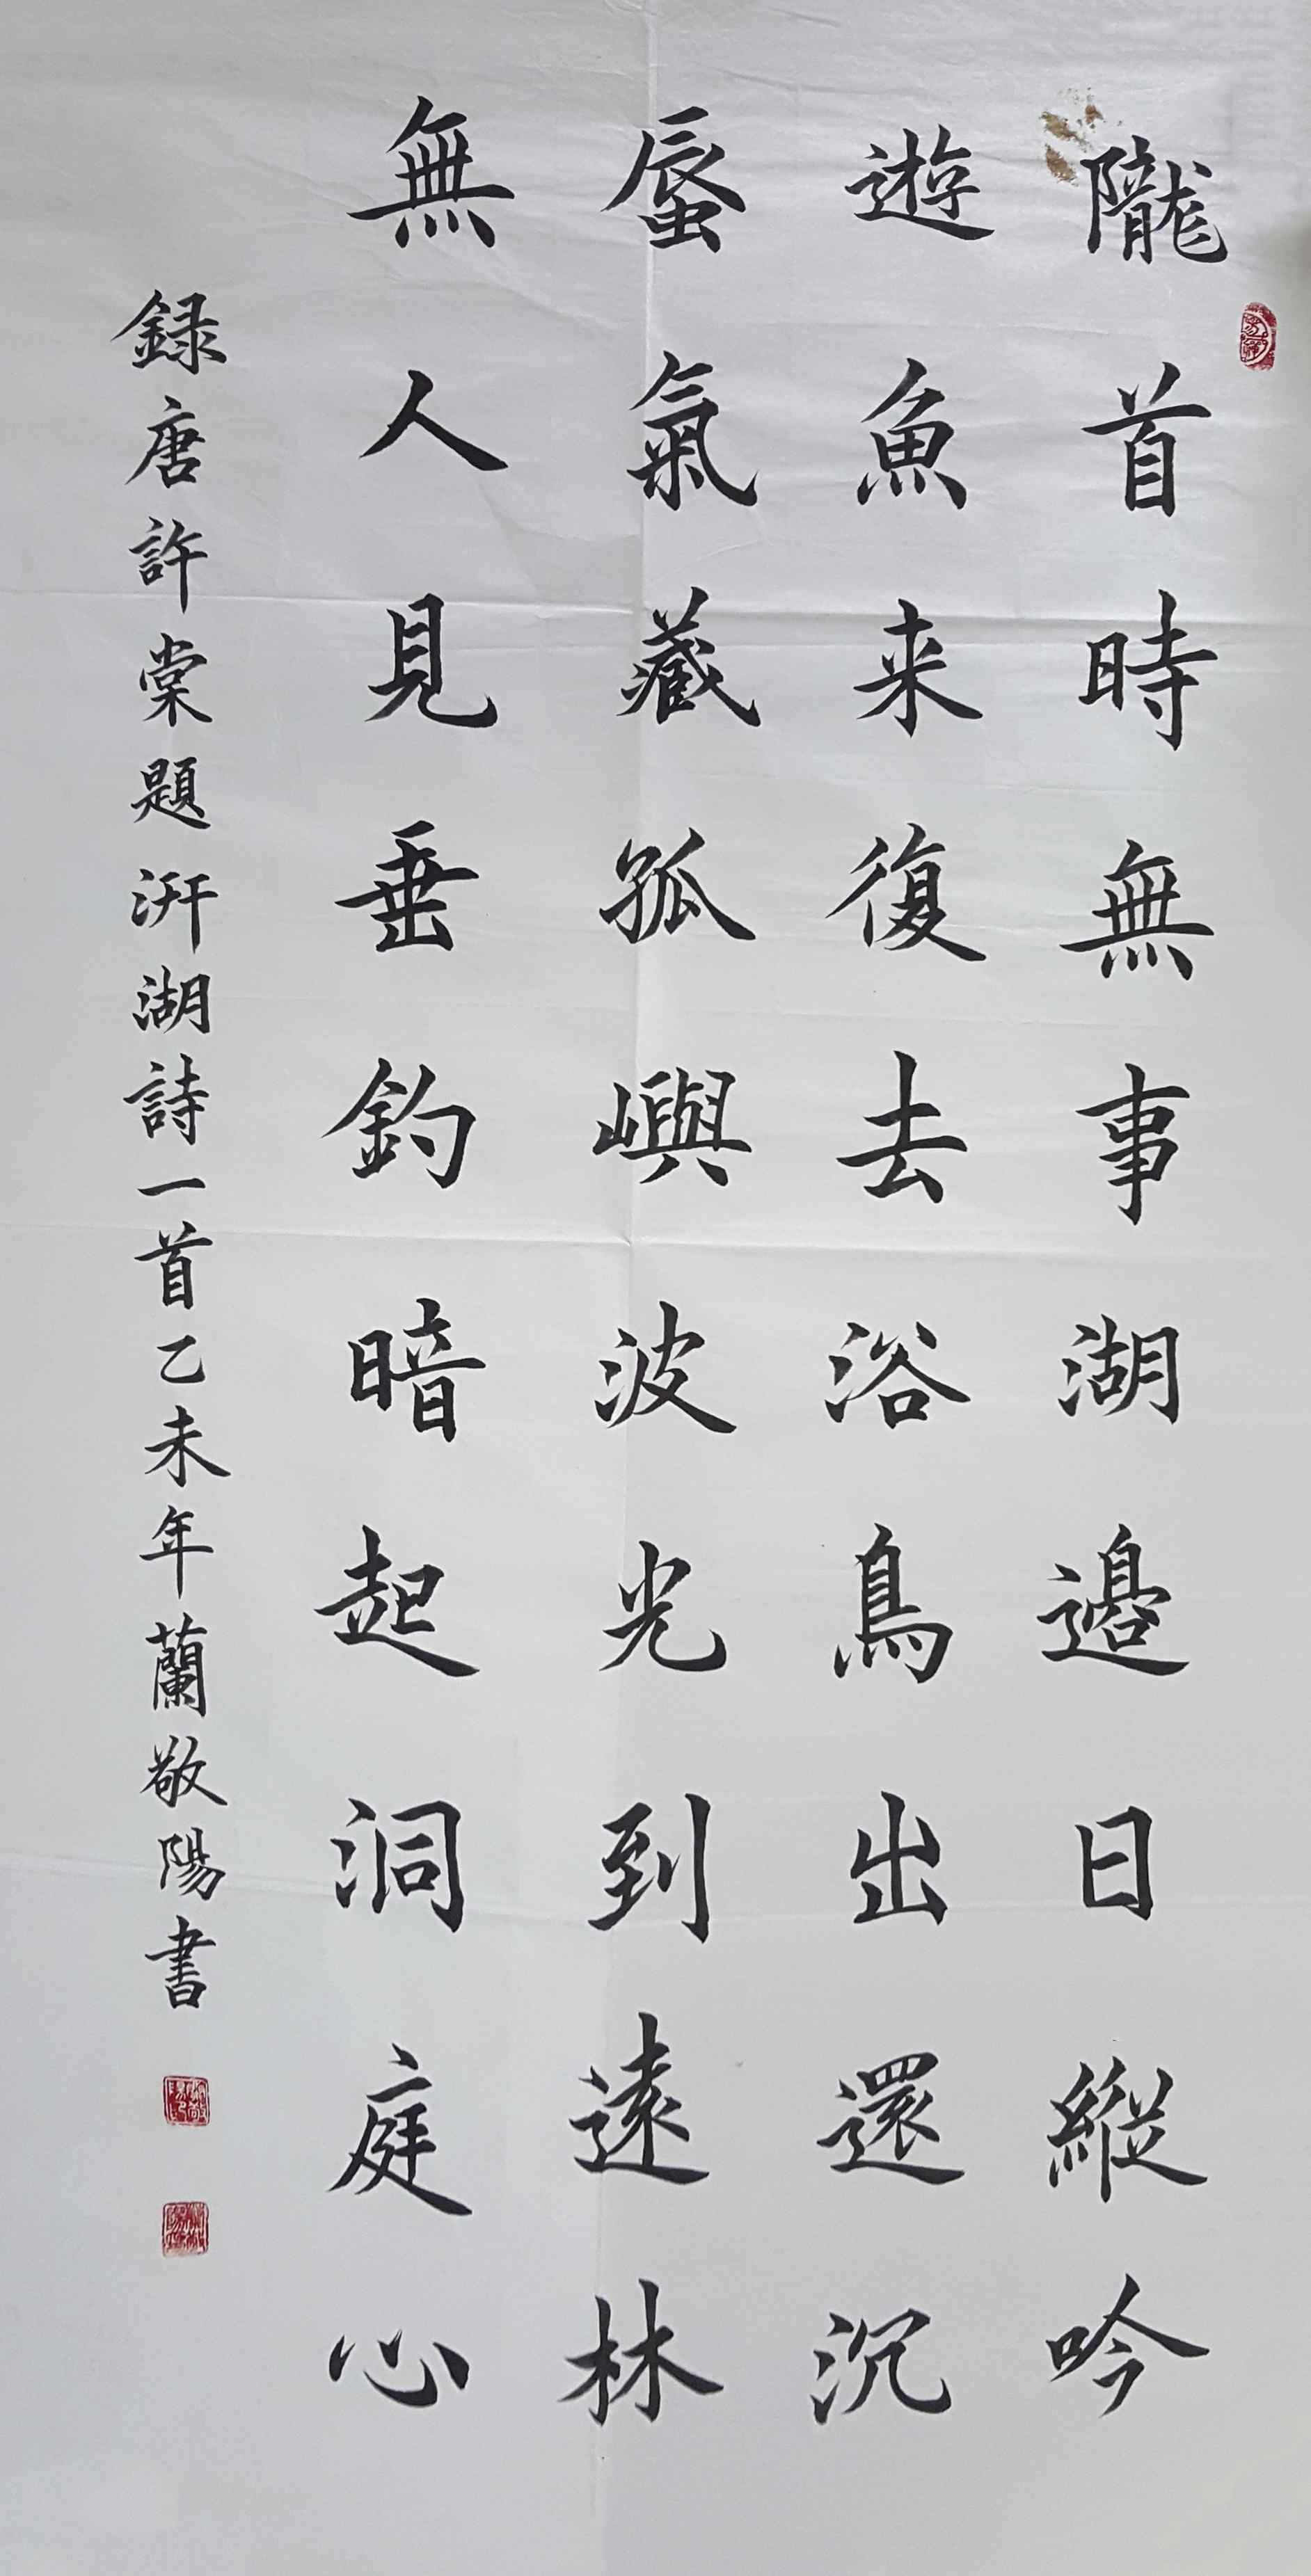 隴首時無事湖邊日縱吟
遊魚来復去浴鳥出還沉
蜃氣藏孤嶼波光到遠林
無人見垂釣暗起洞庭心
録唐許棠題汧湖詩一首乙未年蘭敬陽書